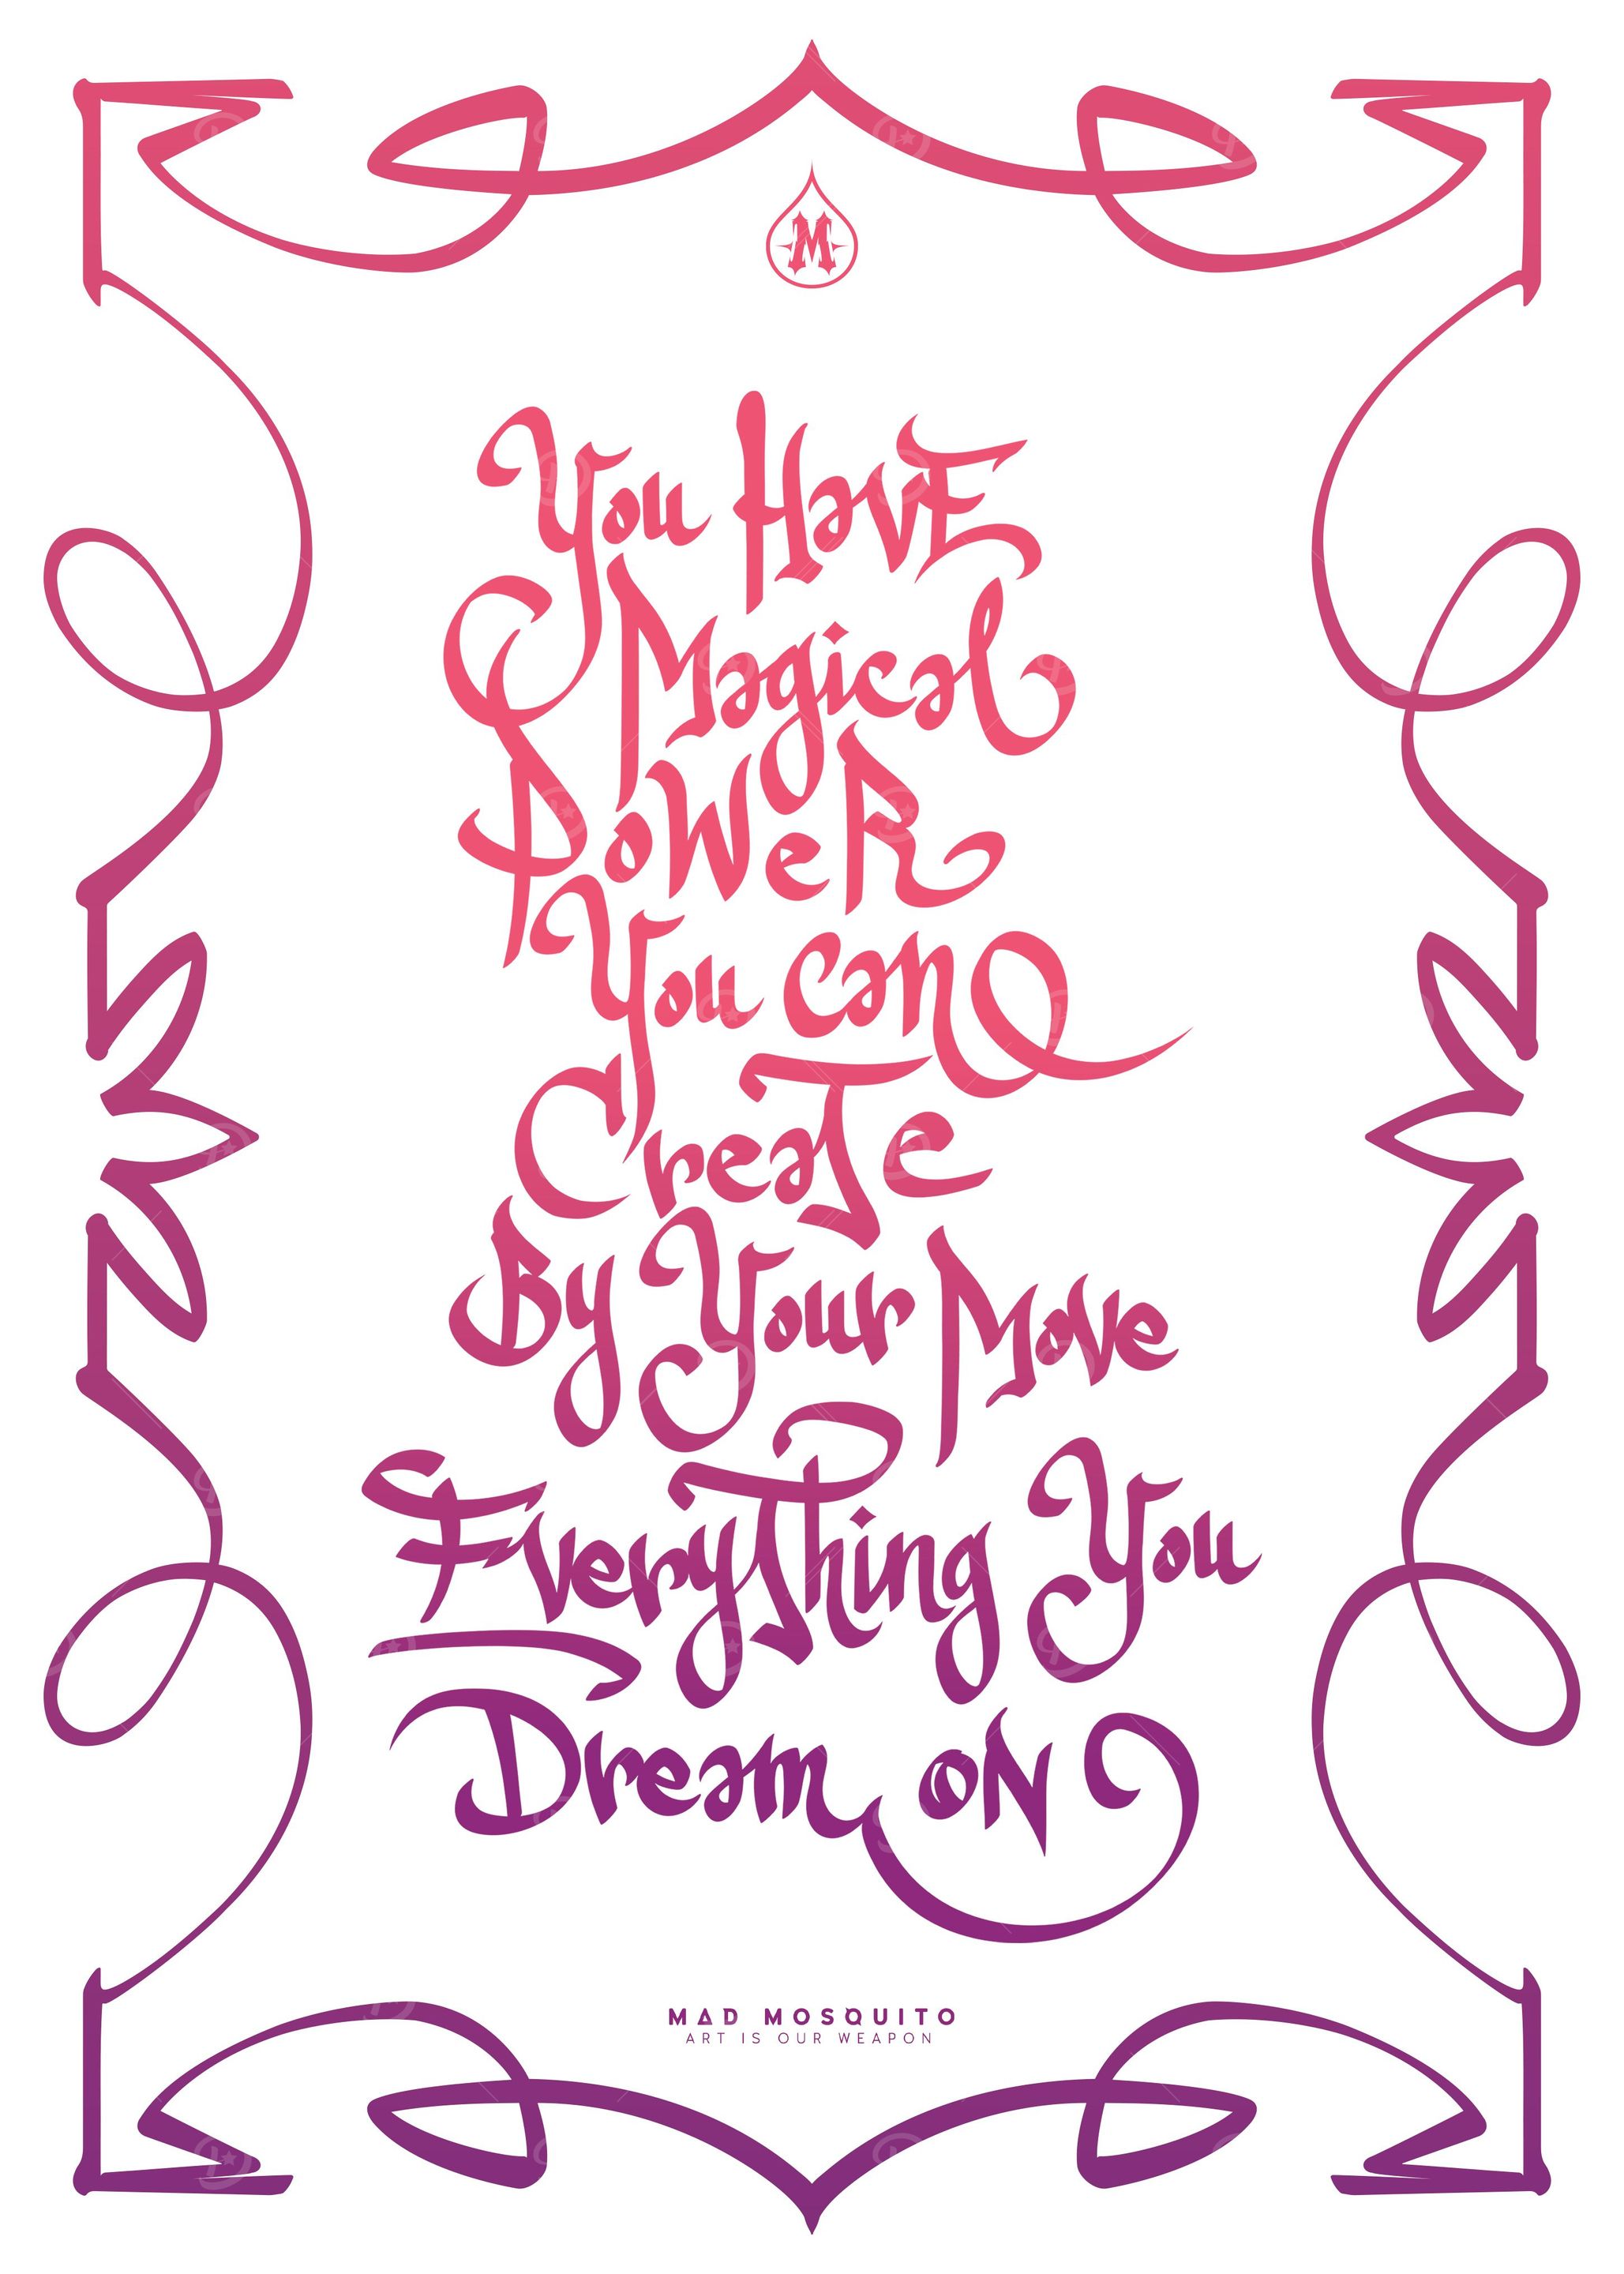 M
You HavE
Magical
PoWeR
You can
CreaTe
By Your Move
EveryThing You
Dream oN
MAD MOSQUITO
ART IS OUR WEAPON